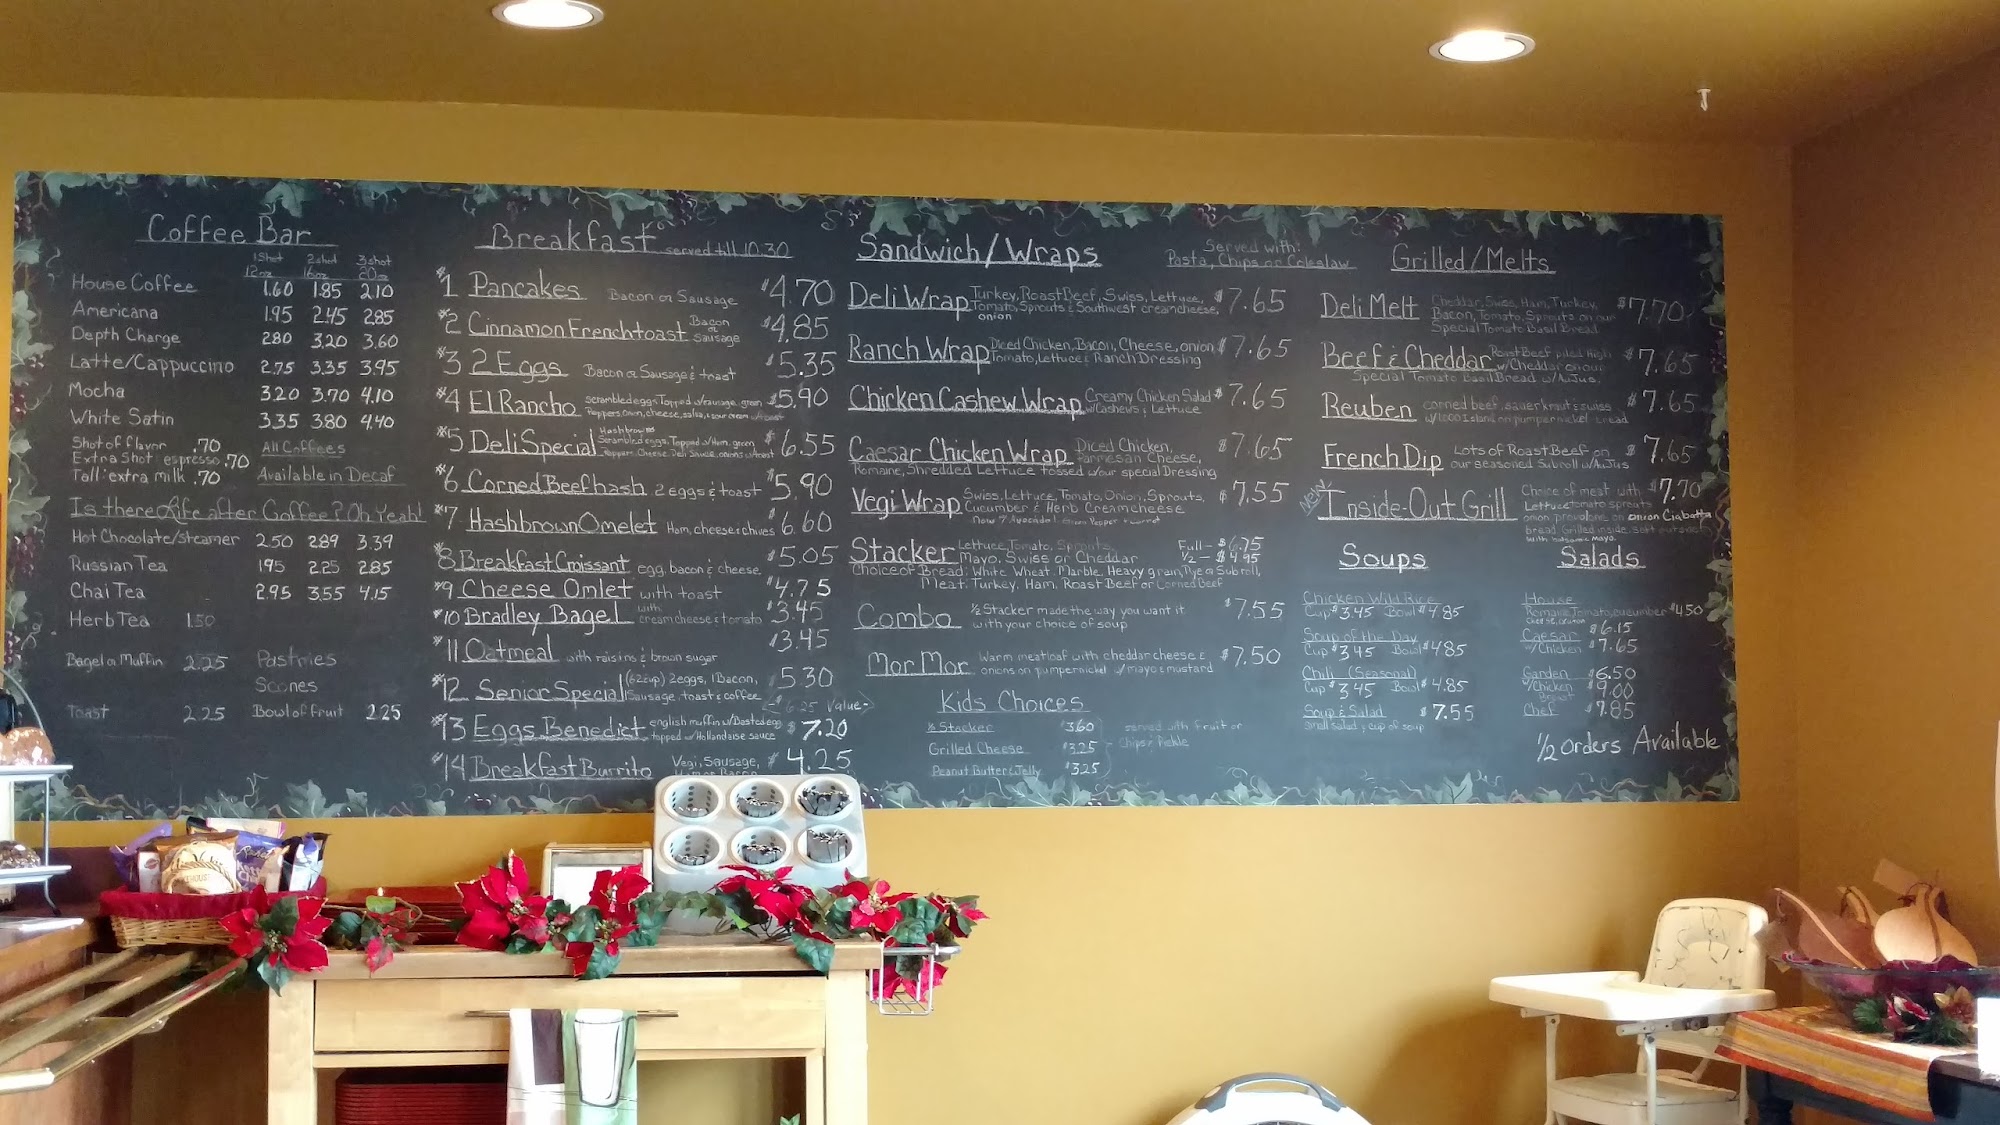 Coffee Bar
1 shot 2 shot 3 shot
12oz 16oz 20oz
House Coffee 1.60 1.85 2.10
Americana 1.95 2.45 2.85
Depth Charge 2.80 3.20 3.60
Latte/Cappuccino 2.75 3.35 3.95
Mocha 3.20 3.70 4.10
White Satin 3.35 3.80 4.40
Shot of flavor .70
Extra Shot espresso .70
Tall: extra milk .70
All Coffees
Available in Decaf
Is there Life after Coffee? Oh Yeah!
Hot Chocolate/Steamer 2.50 2.89 3.39
Russian Tea 1.95 2.25 2.85
Chai Tea 2.95 3.55 4.15
Herb Tea 1.50
Bagel or Muffin 2.25
Pastries
Scones
Toast 2.25
Bowl of Fruit 2.25
Breakfast served till 10:30
#1 Pancakes Bacon or Sausage $4.70
#2 Cinnamon Frenchtoast Bacon or Sausage $4.85
#3 2 Eggs Bacon or Sausage & toast $5.35
#4 El Rancho scrambled eggs Topped w/sausage, green $5.90
Peppers, onion, cheese, salsa, sour cream
#5 Deli Special Hashbrowns $6.55
Scrambled eggs, Topped w/Ham, green
Peppers, Cheese,
#6 Corned Beef hash 2 eggs & toast $5.90
#7 Hashbrown Omelet Ham, cheese & chives $6.60
#8 Breakfast Croissant egg, bacon & cheese $5.05
#9 Cheese Omlet with toast $4.75
#10 Bradley Bagel with creamcheese & tomato $3.45
#11 Oatmeal with raisins & brown sugar $3.45
#12 Senior Special (62 & up) 2 eggs, 1 Bacon, $5.30
1 Sausage, toast & coffee
6.25 Value
#13 Eggs Benedict english muffin w/Basted egg $7.20
topped w/Hollandaise sauce
#14 Breakfast Burrito Vegi, Sausage, $4.25
Sandwich/Wraps
Served with:
Pasta, Chips or Coleslaw
Deli Wrap Turkey, Roast Beef, Swiss, Lettuce, $7.65
Tomato, Sprouts & Southwest creamcheese,
onion
Ranch Wrap Diced Chicken, Bacon, Cheese, onion $7.65
Tomato, Lettuce & Ranch Dressing
Chicken Cashew Wrap Creamy Chicken Salad $7.65
w/Cashews & Lettuce
Caesar Chicken Wrap Diced Chicken, $7.65
Parmesan Cheese,
Romaine, Shredded Lettuce tossed w/our special Dressing
Vegi Wrap Swiss, Lettuce, Tomato, Onion, Sprouts, $7.55
Cucumber & Herb Creamcheese
Now Avocado! Green Pepper & carrot
Stacker Lettuce, Tomato, Sprouts, Full - $6.75
Mayo, Swiss or Cheddar 1/2 - $4.95
Choice of Bread: White, Wheat, Marble, Heavy grain, Rye or Sub roll,
Meat: Turkey, Ham, Roast Beef or Corned Beef
Combo 1/2 Stacker made the way you want it $7.55
with your choice of soup
Mor Mor Warm meatloaf with cheddar cheese & $7.50
onions on pumpernickel w/ mayo & mustard
Kids Choices
1/2 Stacker $3.60
Grilled Cheese $3.25
Peanut Butter & Jelly $3.25
served with fruit or
Chips & Pickle
Grilled/Melts
Deli Melt Cheddar, Swiss, Ham, Turkey, $7.70
Bacon, Tomato, Sprouts on our
Special Tomato Basil Bread
Beef & Cheddar Roast Beef piled High $7.65
w/Cheddar on our
Special Tomato Basil Bread w/AuJus.
Reuben corned beef, sauerkraut & swiss $7.65
w/1000 Island on pumpernickel bread
French Dip Lots of Roast Beef on $7.65
our seasoned Sub roll w/AuJus
New Inside-Out Grill Choice of meat with $7.70
Lettuce tomato sprouts
onion provolone on onion Ciabatta
bread Grilled inside, soft outside
with balsamic mayo.
Soups
Chicken Wild Rice
Cup $3.45 Bowl $4.85
Soup of the Day
Cup $3.45 Bowl $4.85
Chili (Seasonal)
Cup $3.45 Bowl $4.85
Soup & Salad $7.55
Small salad & cup of soup
Salads
House
Romaine, Tomato, cucumber $4.50
Caesar $6.15
w/Chicken $7.65
Garden $6.50
w/Chicken Breast $9.00
Chef $7.85
1/2 Orders Available